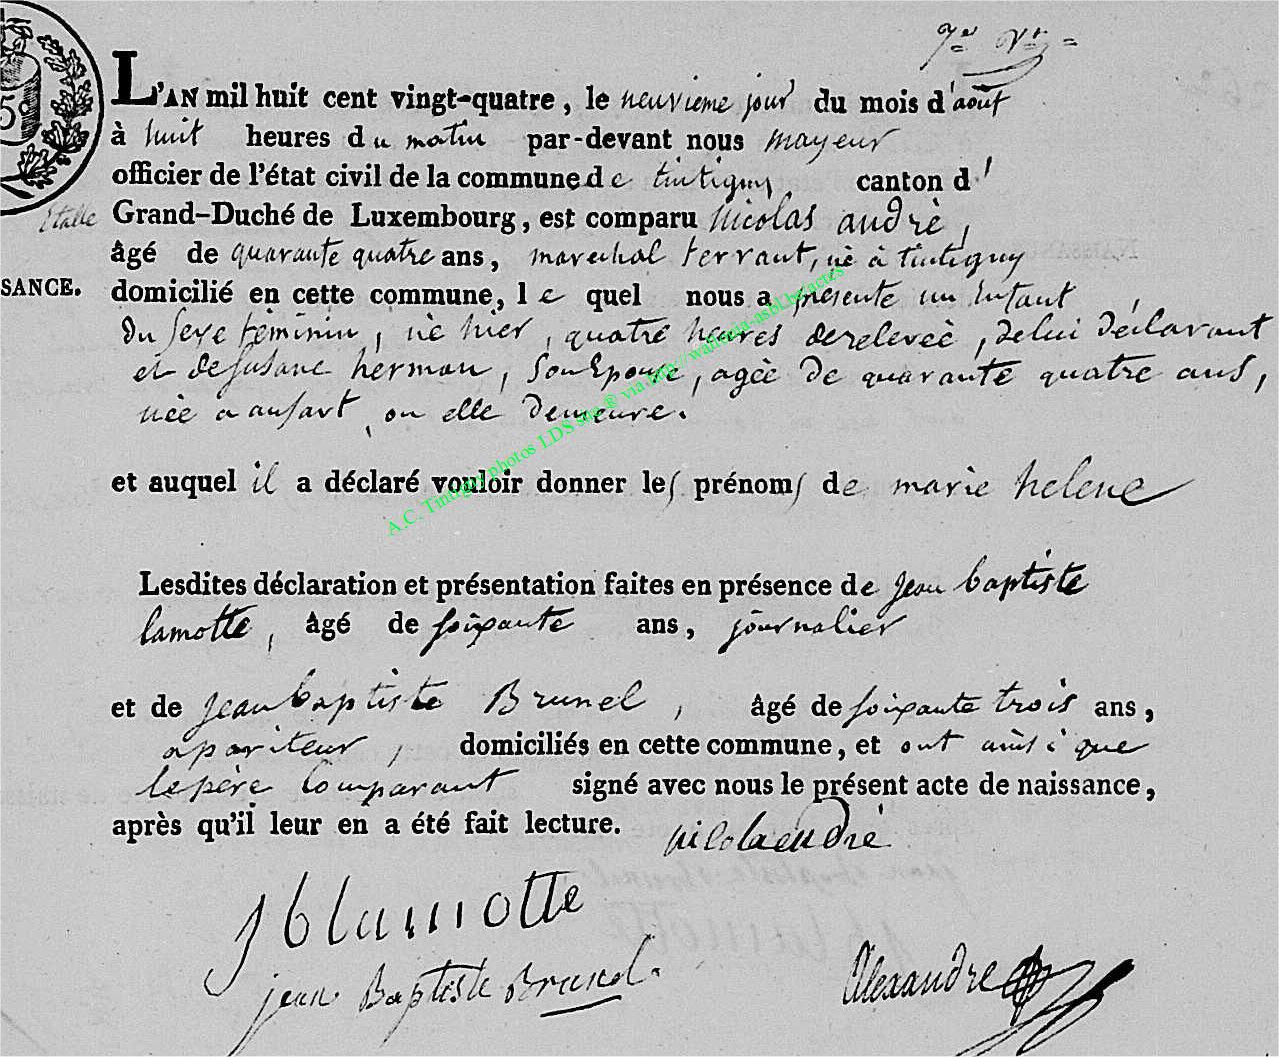 7e Vt
L'AN mil huit cent vingt-quatre, le neuvieme jour du mois d'août
à huit heures du matin par-devant nous mayeur
officier de l'état civil de la commune de tintigny canton d'
Etalle Grand-Duché de Luxembourg, est comparu Nicolas andrè,
âgé de quarante quatre ans, marechal ferrant, nè à tintigny
SANCE. domicilié en cette commune, le quel nous a présente un Enfant
Du sexe féminin, nè hier, quatre heures derelevéè, delui Déclarant
et desusanc herman, son Epouse, agèe De quarante quatre ans,
nèe a ansart, ou elle Demeure.
et auquel il a déclaré vouloir donner les prénoms de marie helene
A.C. Tintigny photos LDS sur ® via http://wallonia-asbl.be/actes
Lesdites déclaration et présentation faites en présence de Jean baptiste
lamotte, âgé de soixante ans, journalier
et de Jean baptiste Brunel, âgé de soixante trois ans,
apariteur, domiciliés en cette commune, et ont ainsi que
lepère Comparant signé avec nous le présent acte de naissance,
après qu'il leur en a été fait lecture.
nicolaendré
J b lamotte
jean Baptiste Brunel
Alexandre